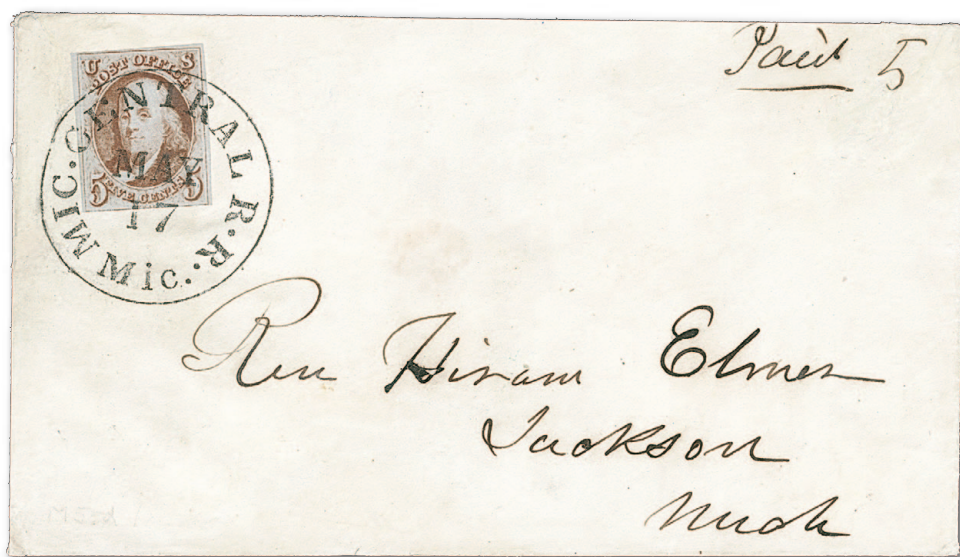 Paid 5
U S
POST OFFICE
5 FIVE CENTS 5
MIC. CENTRAL R.R.
MAY
17
Mic.
Rev Hiram Elmer
Jackson
Mich